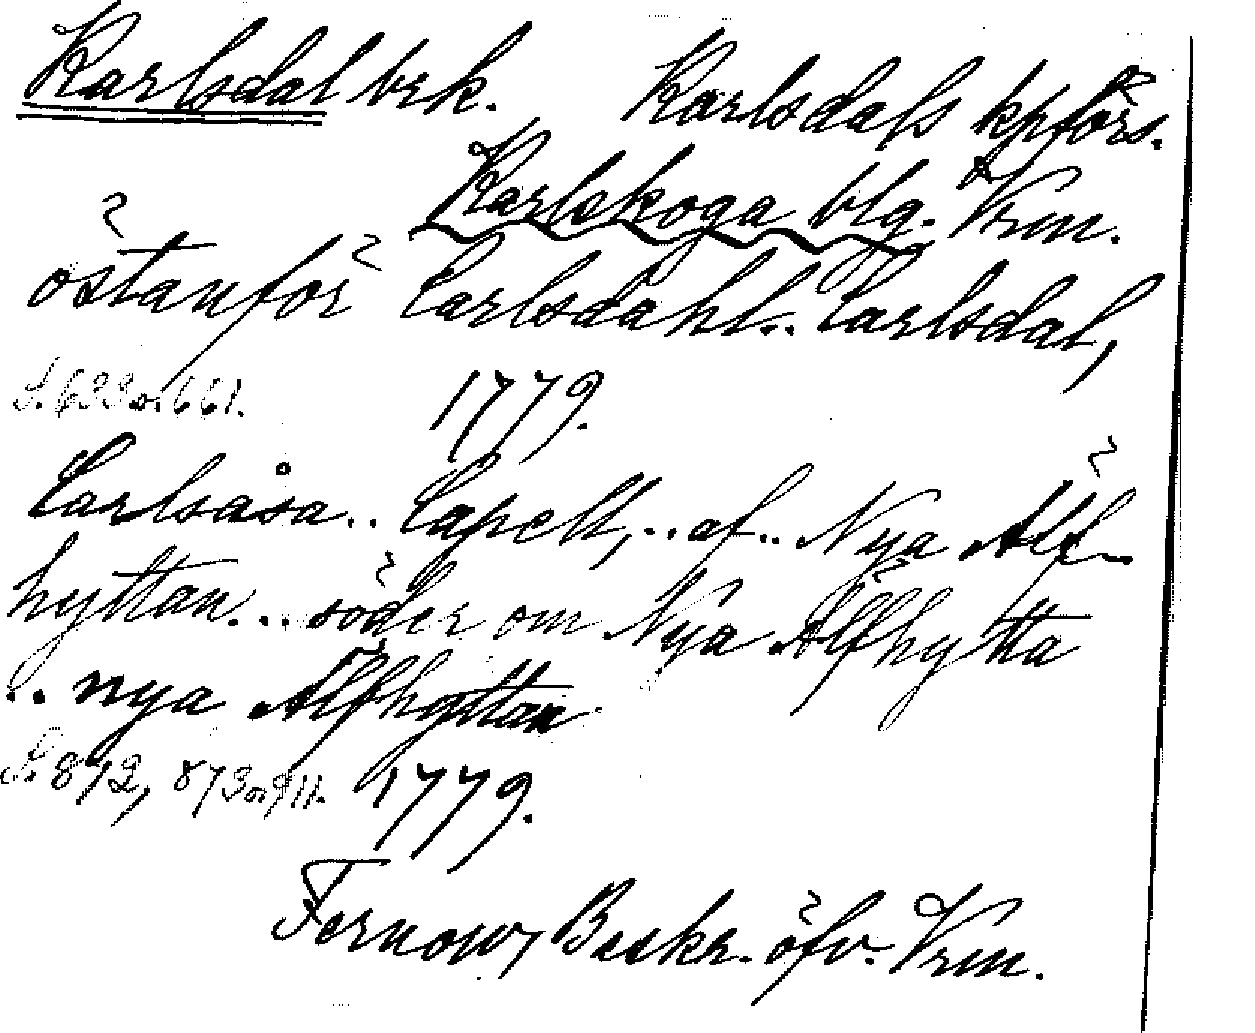 Karlsdal brk. Karlsdals kpförs.
Karlskoga blg. Vrm.
östanför Carlsdahl.. Carlsdal,
S. 633 o. 661. 1779.
Carlsåsa.. Capell,.. af.. Nya Älf-
hyttan... söder om Nya Älfhytta
.. nya Älfhyttan
S. 872, 873 o. 911. 1779.
Fernow, Beskr. öfv. Vrm.